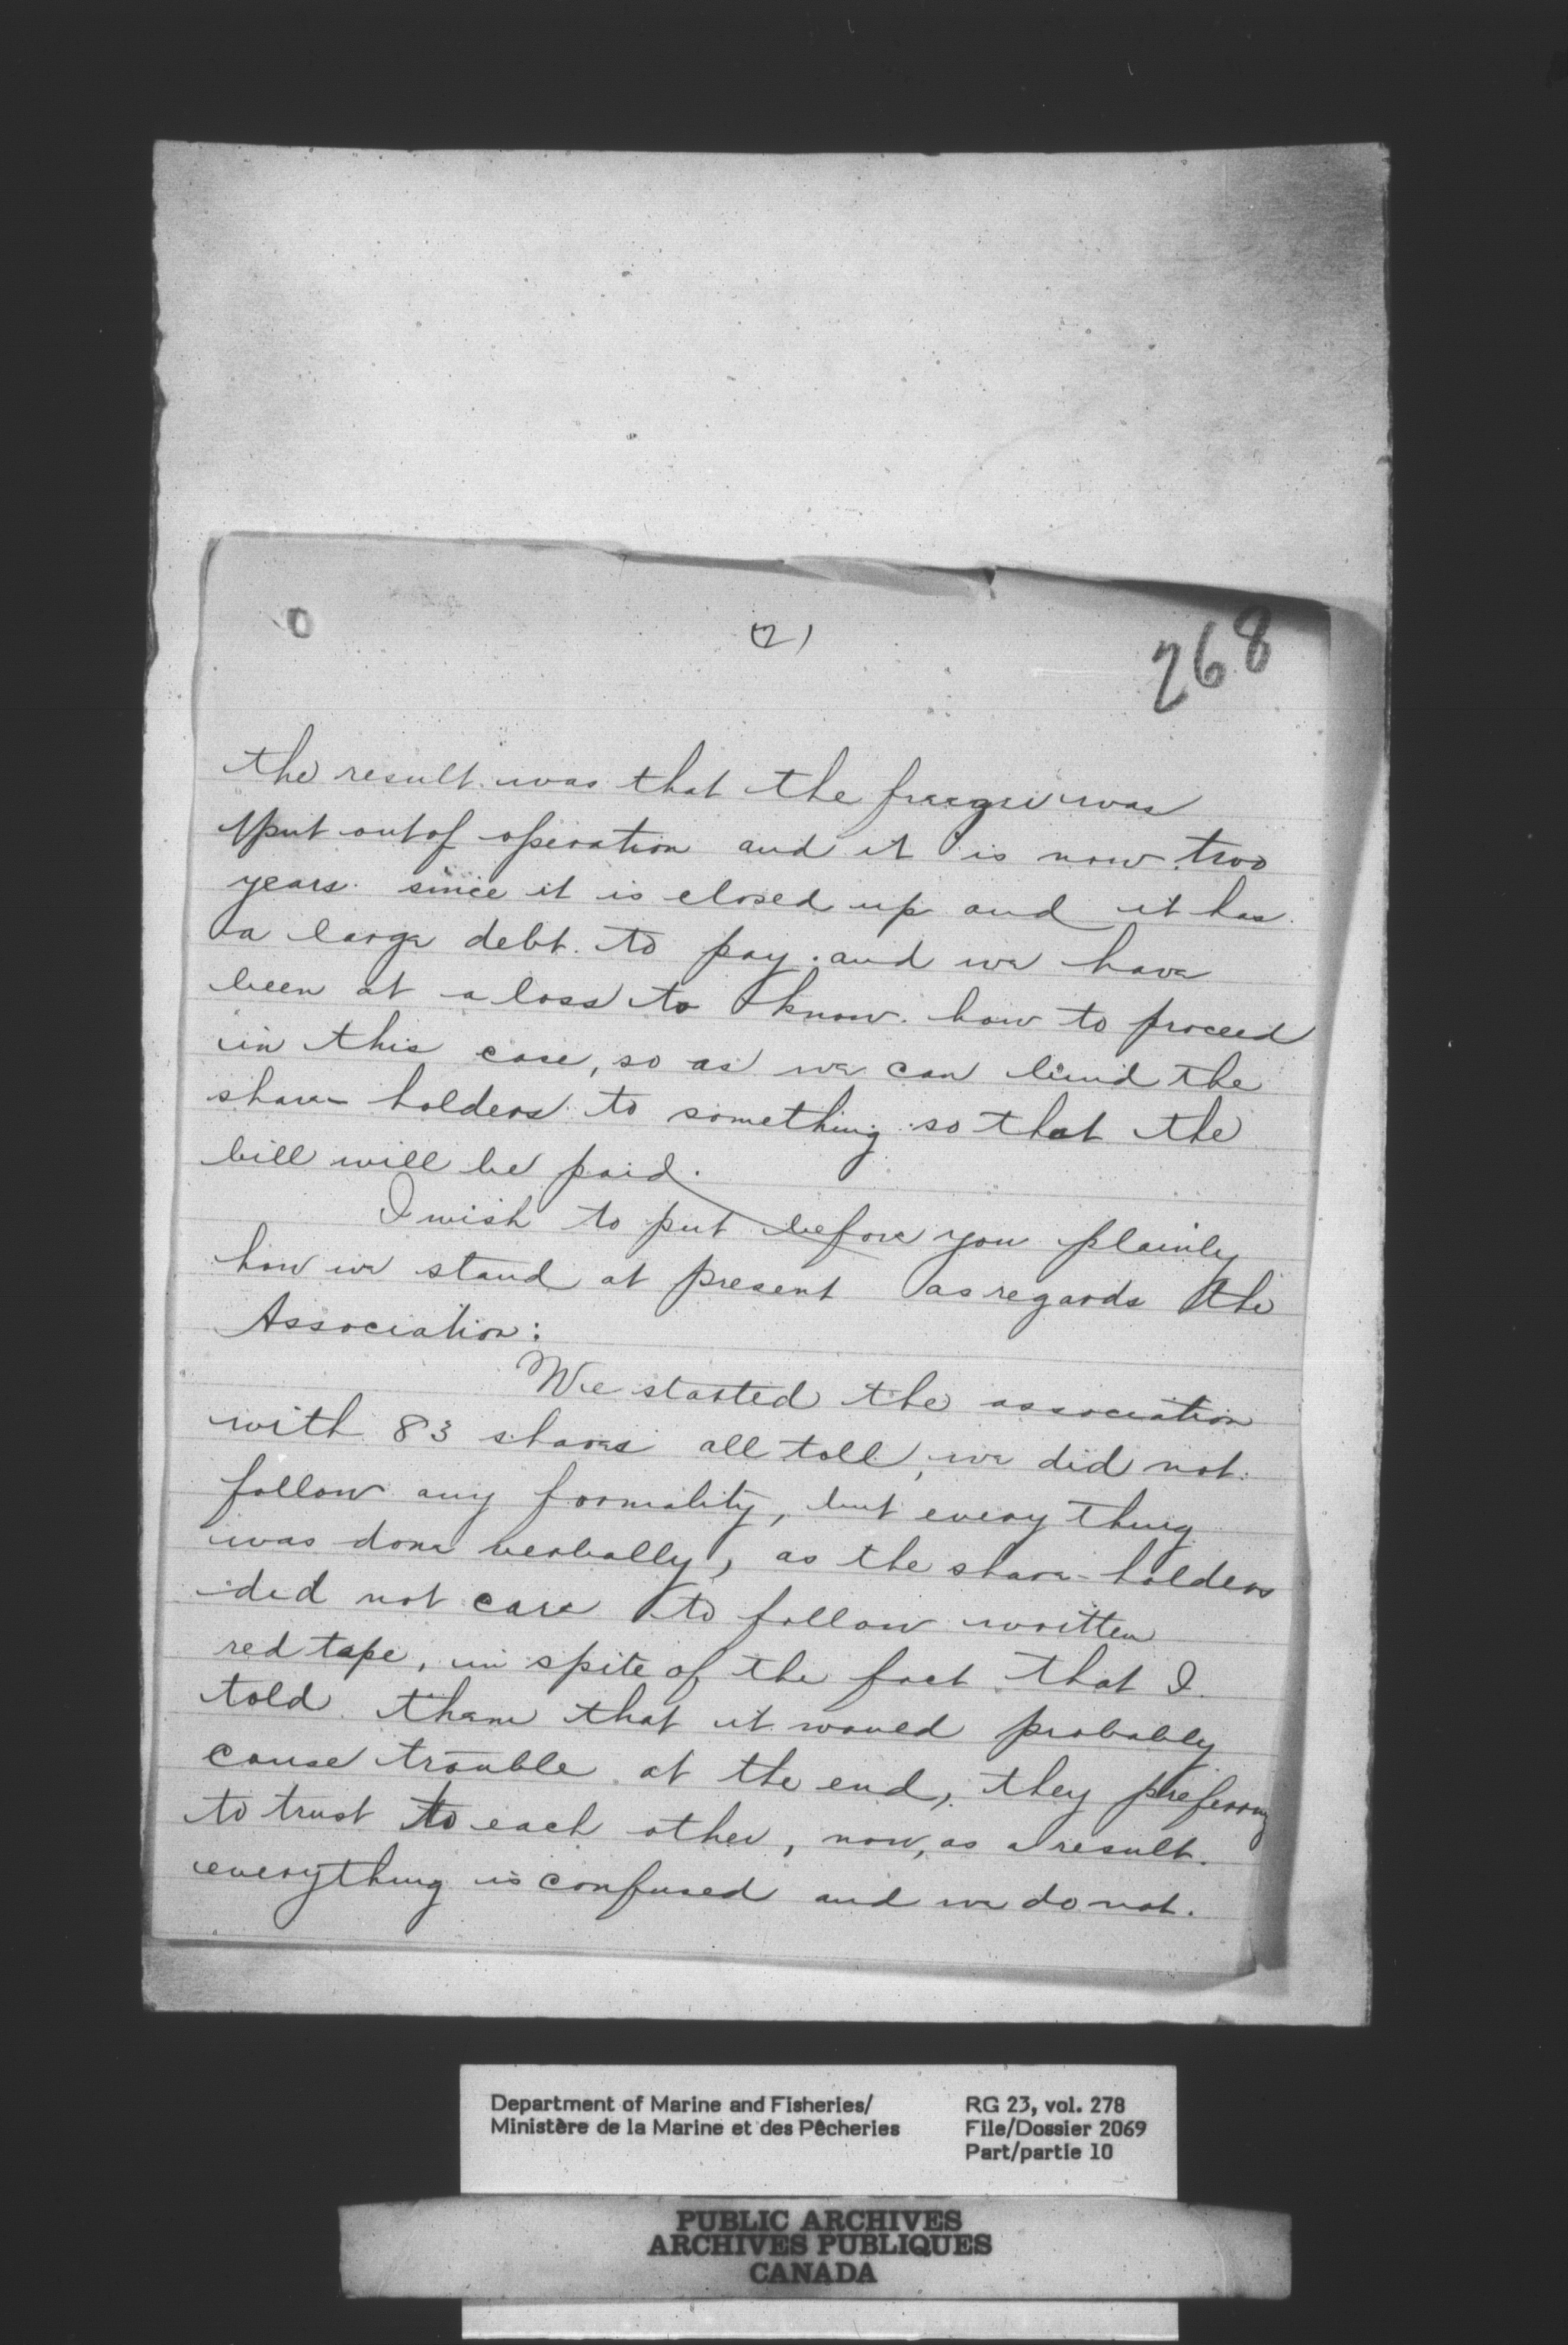 (2)
268
the result was that the freezer was
put out of operation and it is now two
years since it is closed up and it has
a large debt to pay. and we have
been at a loss to know how to proceed
in this case, so as we can bind the
share-holders to something so that the
bill will be paid.
I wish to put before you plainly
how we stand at present as regards the
Association:
We started the association
with 83 shares all toll, we did not
follow any formality, but every thing
was done verbally, as the share-holders
did not care to follow written
red tape, in spite of the fact that I
told them that it would probably
cause trouble at the end, they preferring
to trust to each other, now, as a result
everything is confused and we do not.
Department of Marine and Fisheries/
Ministère de la Marine et des Pêcheries
RG 23, vol. 278
File/Dossier 2069
Part/partie 10
PUBLIC ARCHIVES
ARCHIVES PUBLIQUES
CANADA